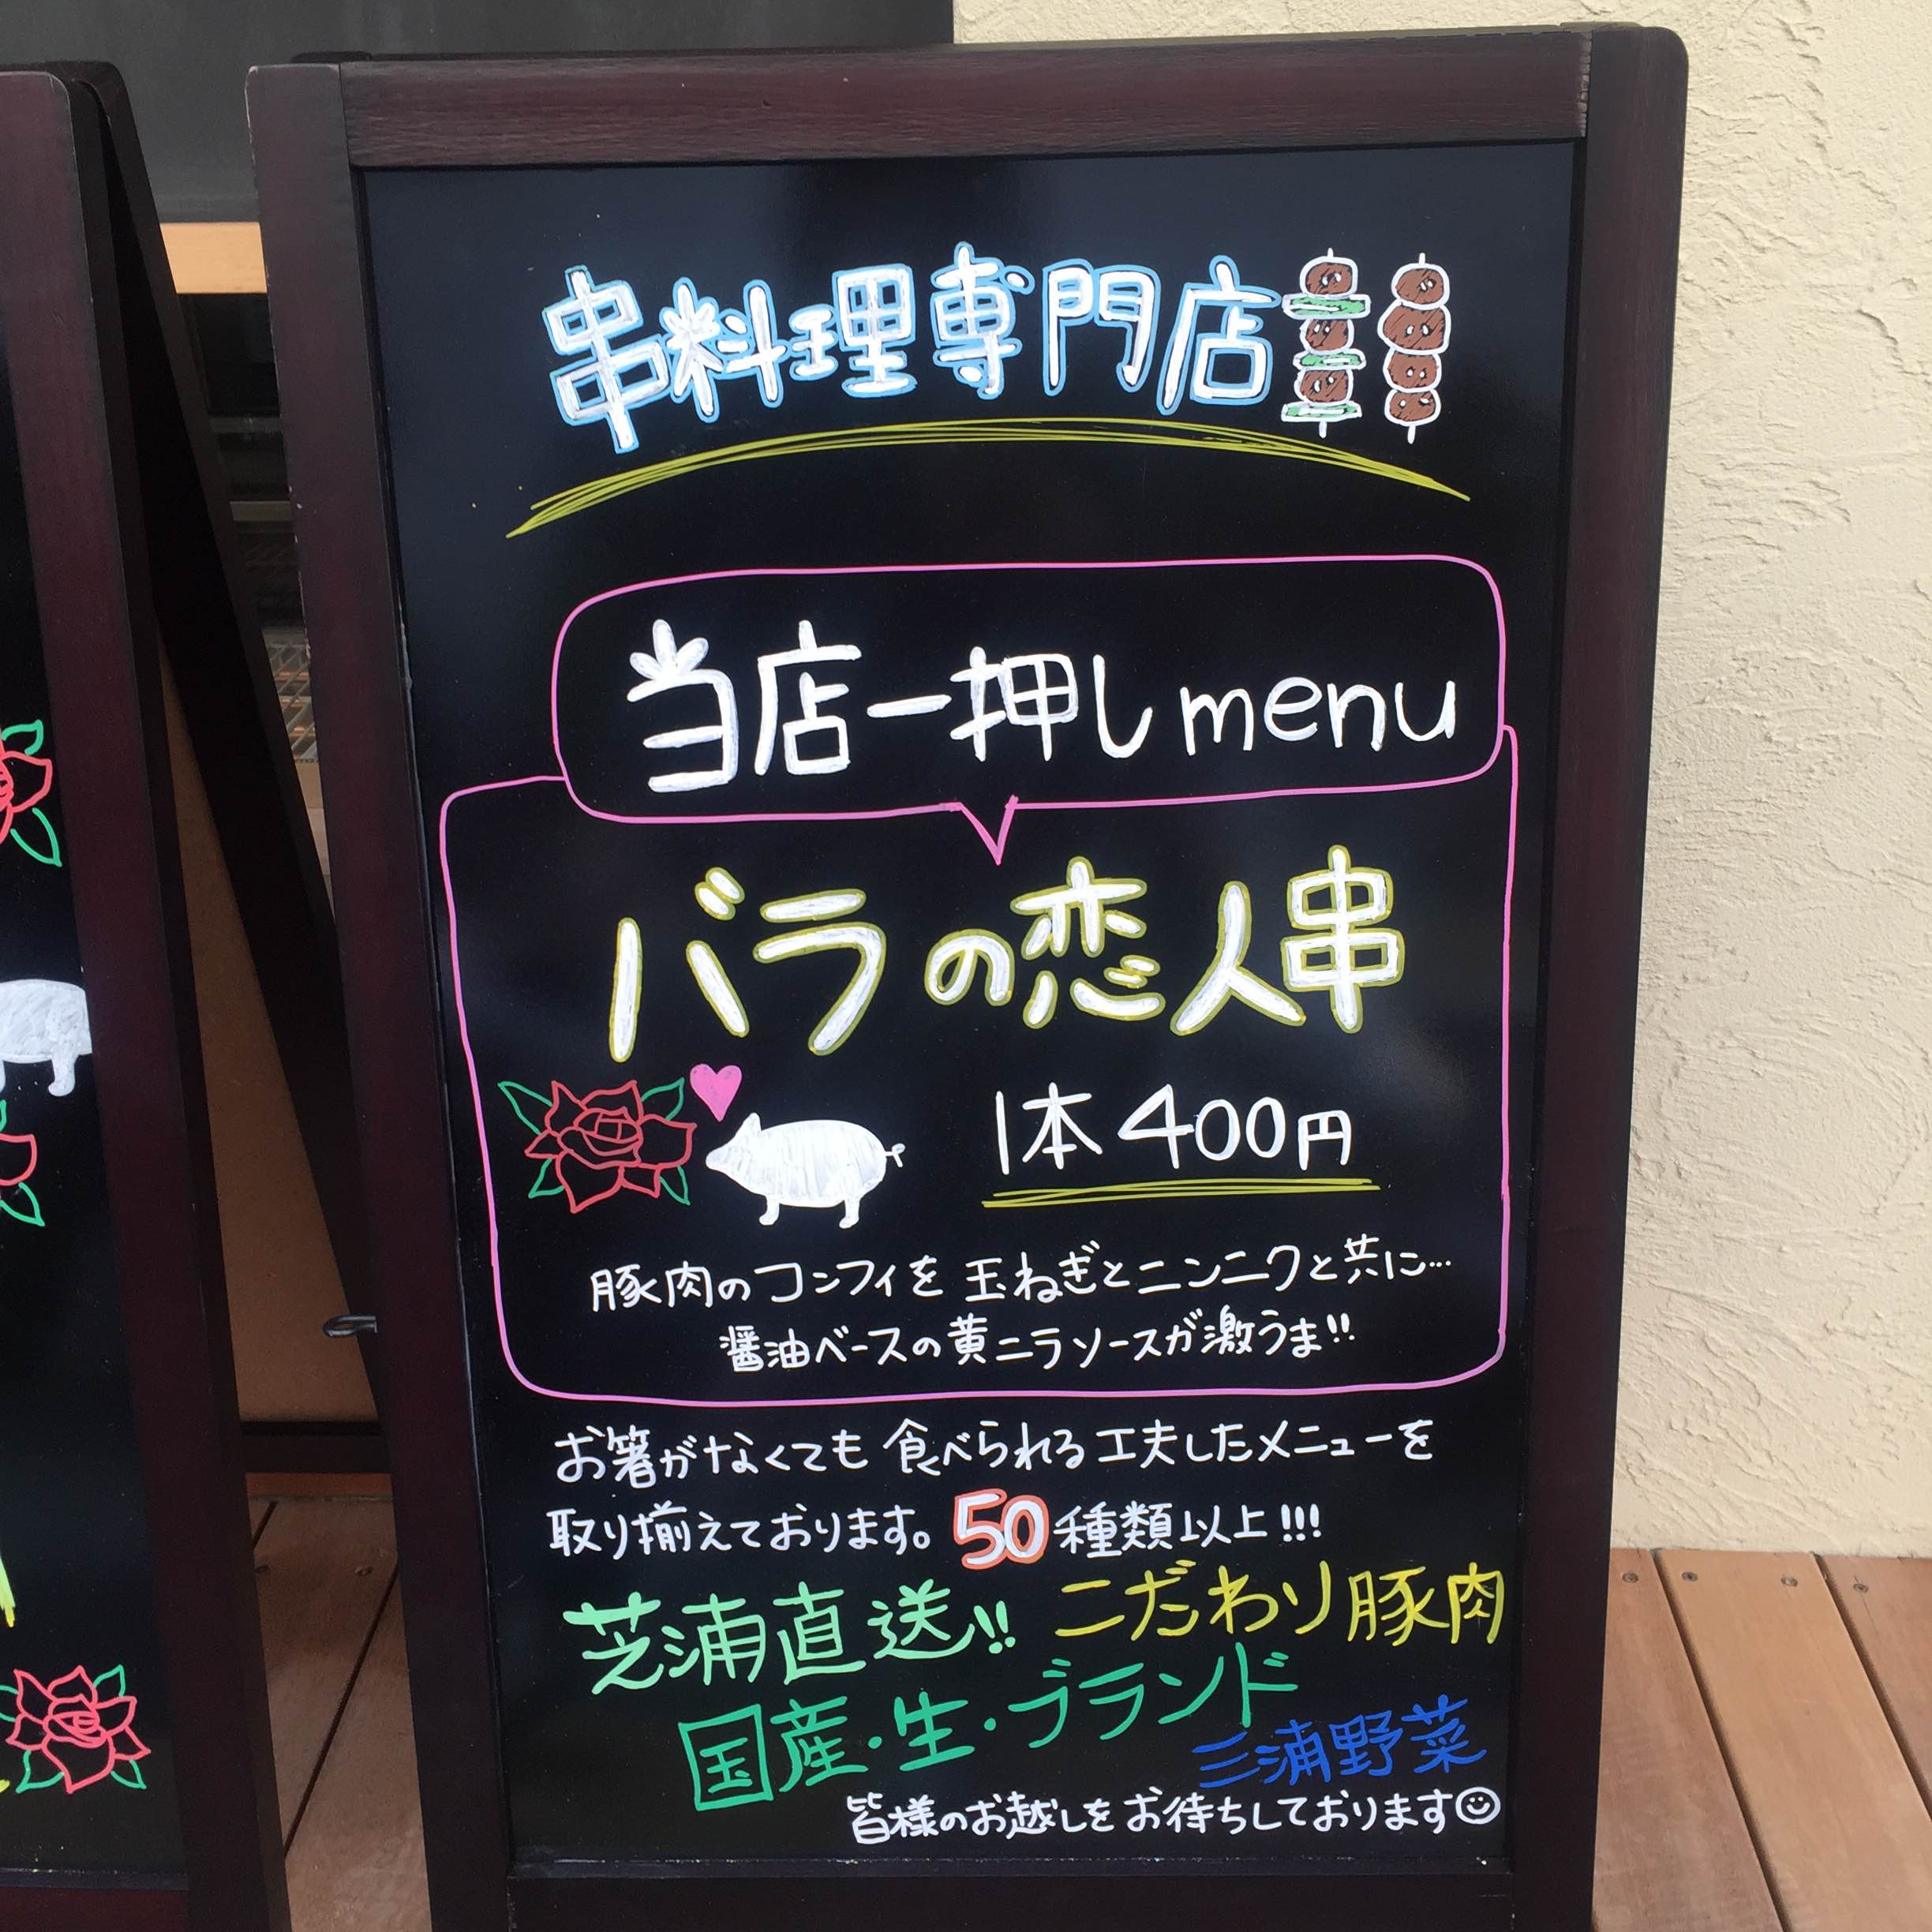 串料理専門店
当店一押しmenu
バラの恋人串
1本400円
豚肉のコンフィを玉ねぎとニンニクと共に…
醤油ベースの黄ニラソースが激うま!!
お箸がなくても食べられる工夫したメニューを
取り揃えております。50種類以上!!!
芝浦直送!! こだわり豚肉
国産・生・ブランド
三浦野菜
皆様のお越しをお待ちしております☺